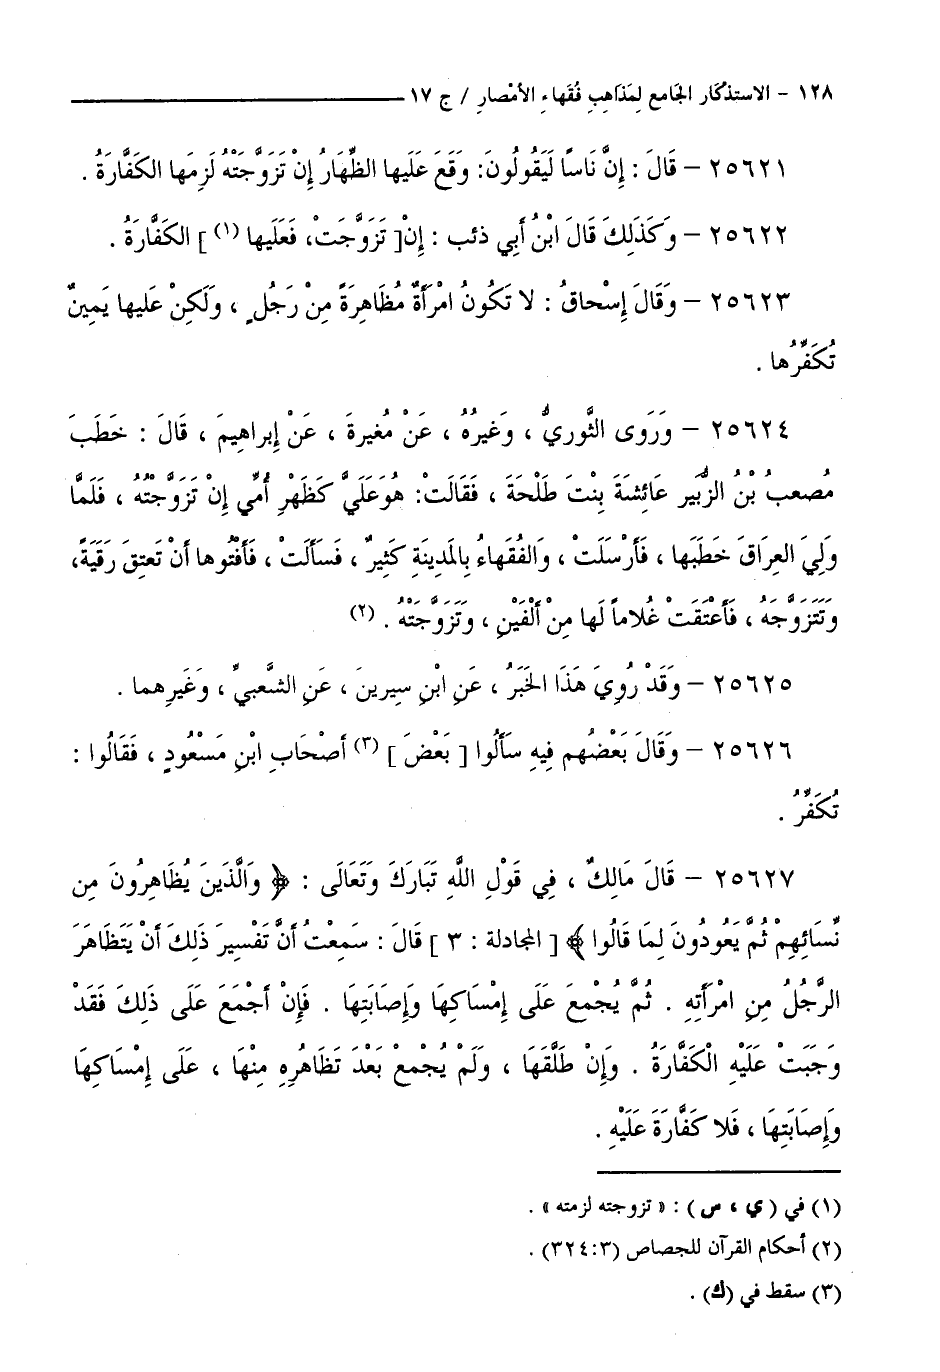 ١٢٨ - الاستذْكار الجَامع لِمَذَاهِبِ فُقَهاءِ الأمْصارِ / ج ١٧
٢٥٦٢١ – قَالَ : إِنَّ نَاسًا لَيَقُولُونَ: وَقَعَ عَلَيها الظِّهَارُ إِنْ تَزَوَّجَتْهُ لَزِمَها الكَفَّارَةُ .
٢٥٦٢٢ – وَكَذَلِكَ قَالَ ابْنُ أَبِي ذئب : إِنْ [ تَزَوَّجَت، فَعَلَيها (١) ] الكَفَّارَةُ .
٢٥٦٢٣ – وَقَالَ إِسْحاقُ : لا تَكُونُ امْرَأَةٌ مُظَاهِرَةً مِنْ رَجُلٍ ، وَلَكِنْ عَليها يَمِينٌ
تُكَفِّرُها .
٢٥٦٢٤ – وَرَوَى الثَّوريُّ ، وَغيرُهُ ، عَنْ مُغيرةَ ، عَنْ إِبراهِيمَ ، قَالَ : خَطَبَ
مُصعبُ بْنُ الزُّبَير عَائشةَ بِنْتَ طَلْحَةَ ، فَقَالَتْ: هُوَ عَلَيَّ كَظَهْرِ أُمِّي إِنْ تَزَوَّجْتُهُ ، فَلَمَّا
وَلِيَ العِرَاقَ خَطَبَها ، فَأَرْسَلَتْ ، وَالفُقَهاءُ بِالمَدِينَةِ كَثِيرٌ ، فَسأَلَتْ ، فَأَفْتُوها أَنْ تَعتِقَ رَقَبَةً،
وَتَتَزَوَّجَهُ ، فَأَعْتَقَتْ غُلاماً لَها مِنْ أَلْفَيْنِ ، وَتَزَوَّجَتْهُ . (٢)
٢٥٦٢٥ – وَقَدْ رُوِيَ هَذَا الخَبَرُ ، عَنِ ابْنِ سِيرينَ ، عَنِ الشَّعبيِّ ، وَغَيرِهما .
٢٥٦٢٦ – وَقَالَ بَعْضُهم فِيهِ سَأَلُوا [ بَعْضَ ] (٣) أَصْحَابِ ابْنِ مَسْعُودٍ ، فَقَالُوا :
تُكَفِّرُ .
٢٥٦٢٧ – قَالَ مَالِكٌ ، فِي قَوْلِ اللَّهِ تَبَارَكَ وَتَعَالَى : ﴿ وَالَّذَينَ يُظَاهِرُونَ مِن
نِّسَائِهِمْ ثُمَّ يَعُودُونَ لِمَا قَالُوا ﴾ [ المجادلة : ٣ ] قَالَ : سَمِعْتُ أَنَّ تَفْسِيرَ ذَلِكَ أَنْ يَتَظَاهَرَ
الرَّجُلُ مِنِ امْرَأَتِهِ . ثُمَّ يُجْمِعَ عَلَى إِمْسَاكِهَا وَإِصَابَتِهَا . فَإِنْ أَجْمَعَ عَلَى ذَلِكَ فَقَدْ
وَجَبَتْ عَلَيْهِ الْكَفَّارَةُ . وَإِنْ طَلَّقَهَا ، وَلَمْ يُجْمِعْ بَعْدَ تَظَاهُرِهِ مِنْهَا ، عَلَى إِمْسَاكِهَا
وَإِصَابَتِهَا ، فَلا كَفَّارَةَ عَلَيْهِ .
(١) في (ي ، س) : « تزوجته لزمته » .
(٢) أحكام القرآن للجصاص (٣٢٤:٣) .
(٣) سقط في (ك) .